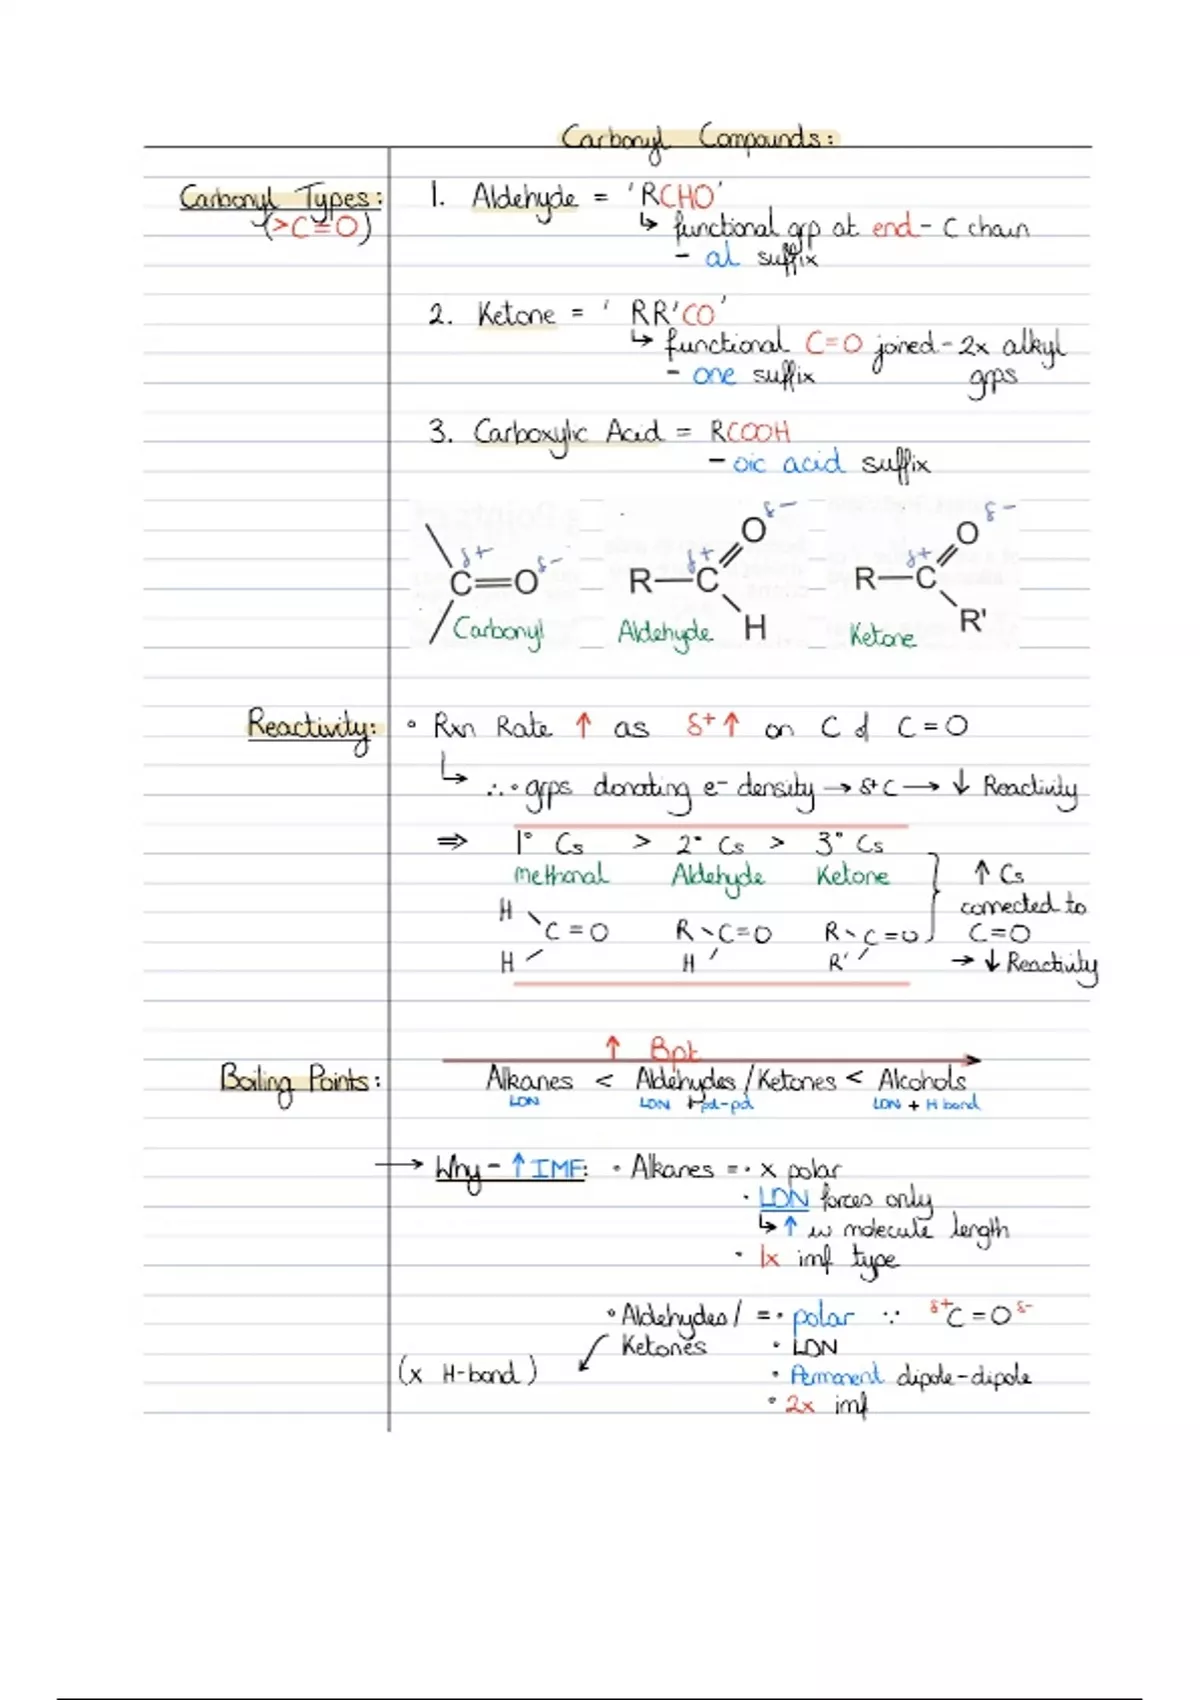 Carbonyl Compounds:
Carbonyl Types:
(>C=O)
1. Aldehyde = 'RCHO'
↳ functional grp at end - C chain
- al suffix
2. Ketone = 'RR'CO'
↳ functional C=O joined - 2x alkyl
grps
- one suffix
3. Carboxylic Acid = RCOOH
- oic acid suffix
δ+ δ-
C=O
Carbonyl
δ+ δ-
R-C
O
H
Aldehyde
δ+ δ-
R-C
O
R'
Ketone
Reactivity:
• Rxn Rate ↑ as δ+ ↑ on C of C=O
↳ ∴ • grps donating e- density → δ+C → ↓ Reactivity
⇒ 1° Cs > 2° Cs > 3° Cs
methanal Aldehyde Ketone
H
H
C=O
R
H
C=O
R
R'
C=O
↑ Cs
connected to
C=O
→ ↓ Reactivity
↑ Bpt
Boiling Points:
Alkanes < Aldehydes/Ketones < Alcohols
LDN LDN + pd-pd LDN + H bond
→ Why - ↑ IMF: • Alkanes = • x polar
• LDN forces only
↳ ↑ w molecule length
• 1x imf type
• Aldehydes/ = • polar ∵ δ+C=Oδ-
Ketones • LDN
(x H-bond) • Permanent dipole-dipole
• 2x imf